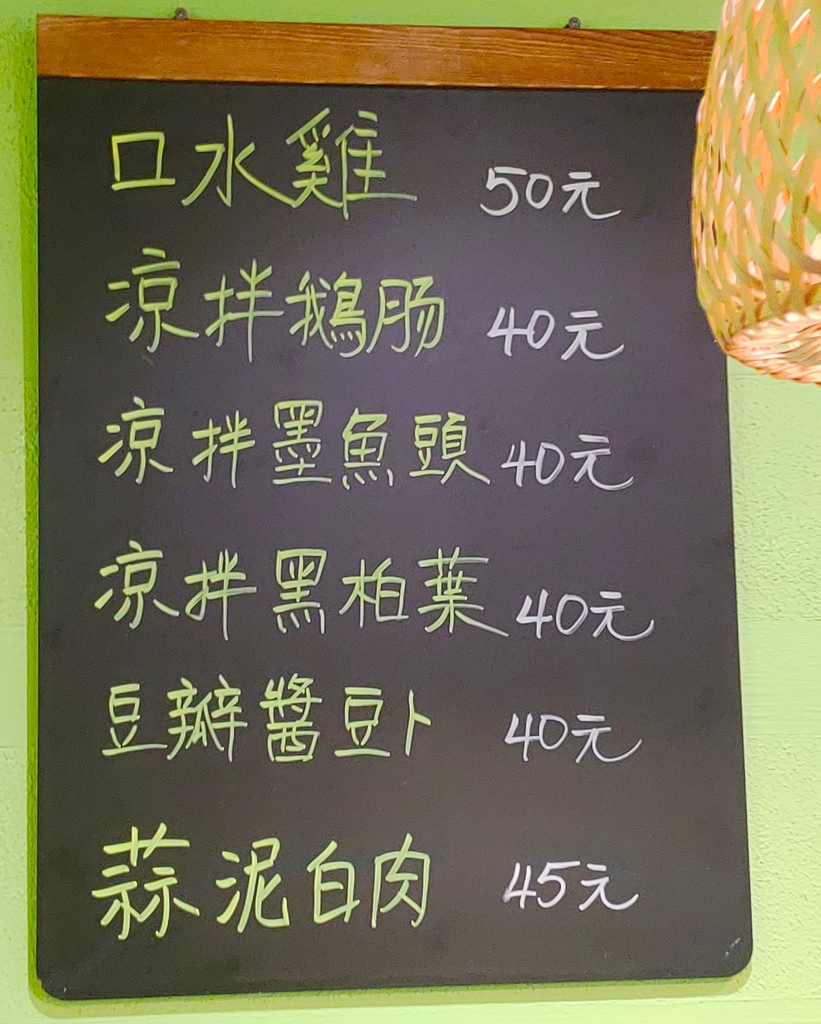 口水雞 50元
涼拌鵝肠 40元
涼拌墨魚頭 40元
涼拌黑柏葉 40元
豆瓣醬豆卜 40元
蒜泥白肉 45元